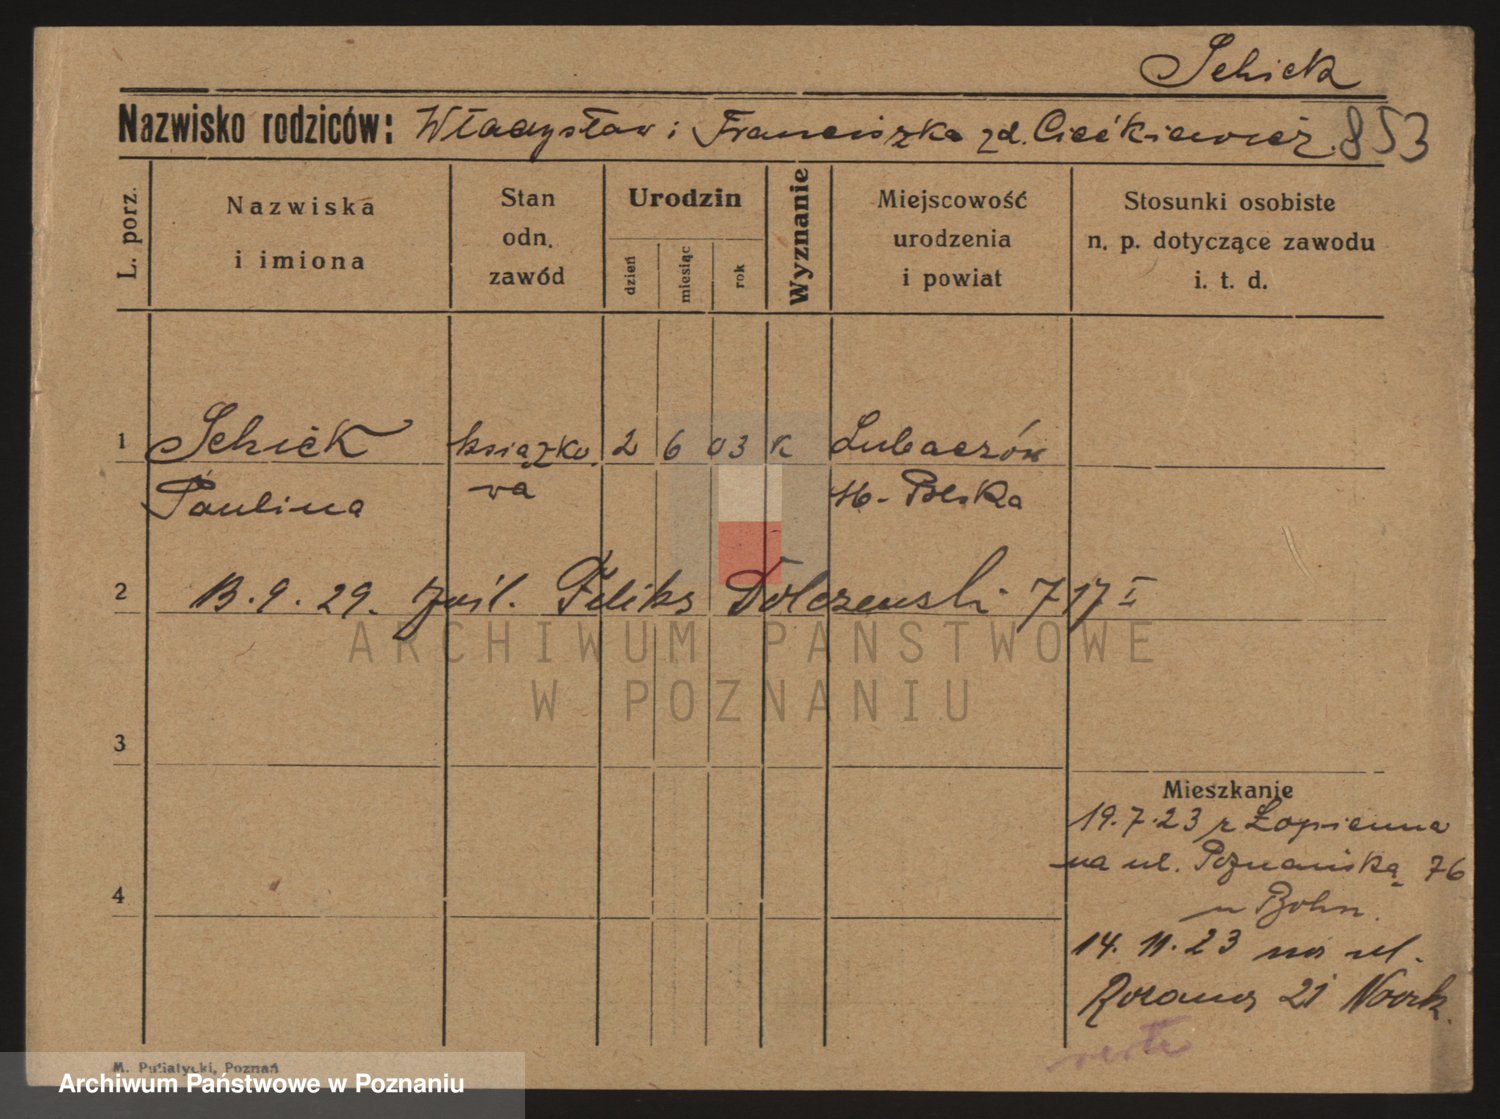 Schick
Nazwisko rodziców: Władysław i Franciszka zd. Ciećkiewicz. 853
L. porz.
Nazwiska
i imiona
Stan
odn.
zawód
Urodzin
dzień
miesiąc
rok
Wyznanie
Miejscowość
urodzenia
i powiat
Stosunki osobiste
n. p. dotyczące zawodu
i. t. d.
1 Schick książko 2 6 03 k Lubaczów
Paulina wa Polska
2 13.9.29. Feliks Dolczewski 717 I
ARCHIWUM PAŃSTWOWE
W POZNANIU
3
Mieszkanie
19.7.23 z Łopienna
na ul. Poznańską 76
u Bohn.
4
14.11.23 na ul.
21
verte
M. Putiatycki, Poznań
Archiwum Państwowe w Poznaniu